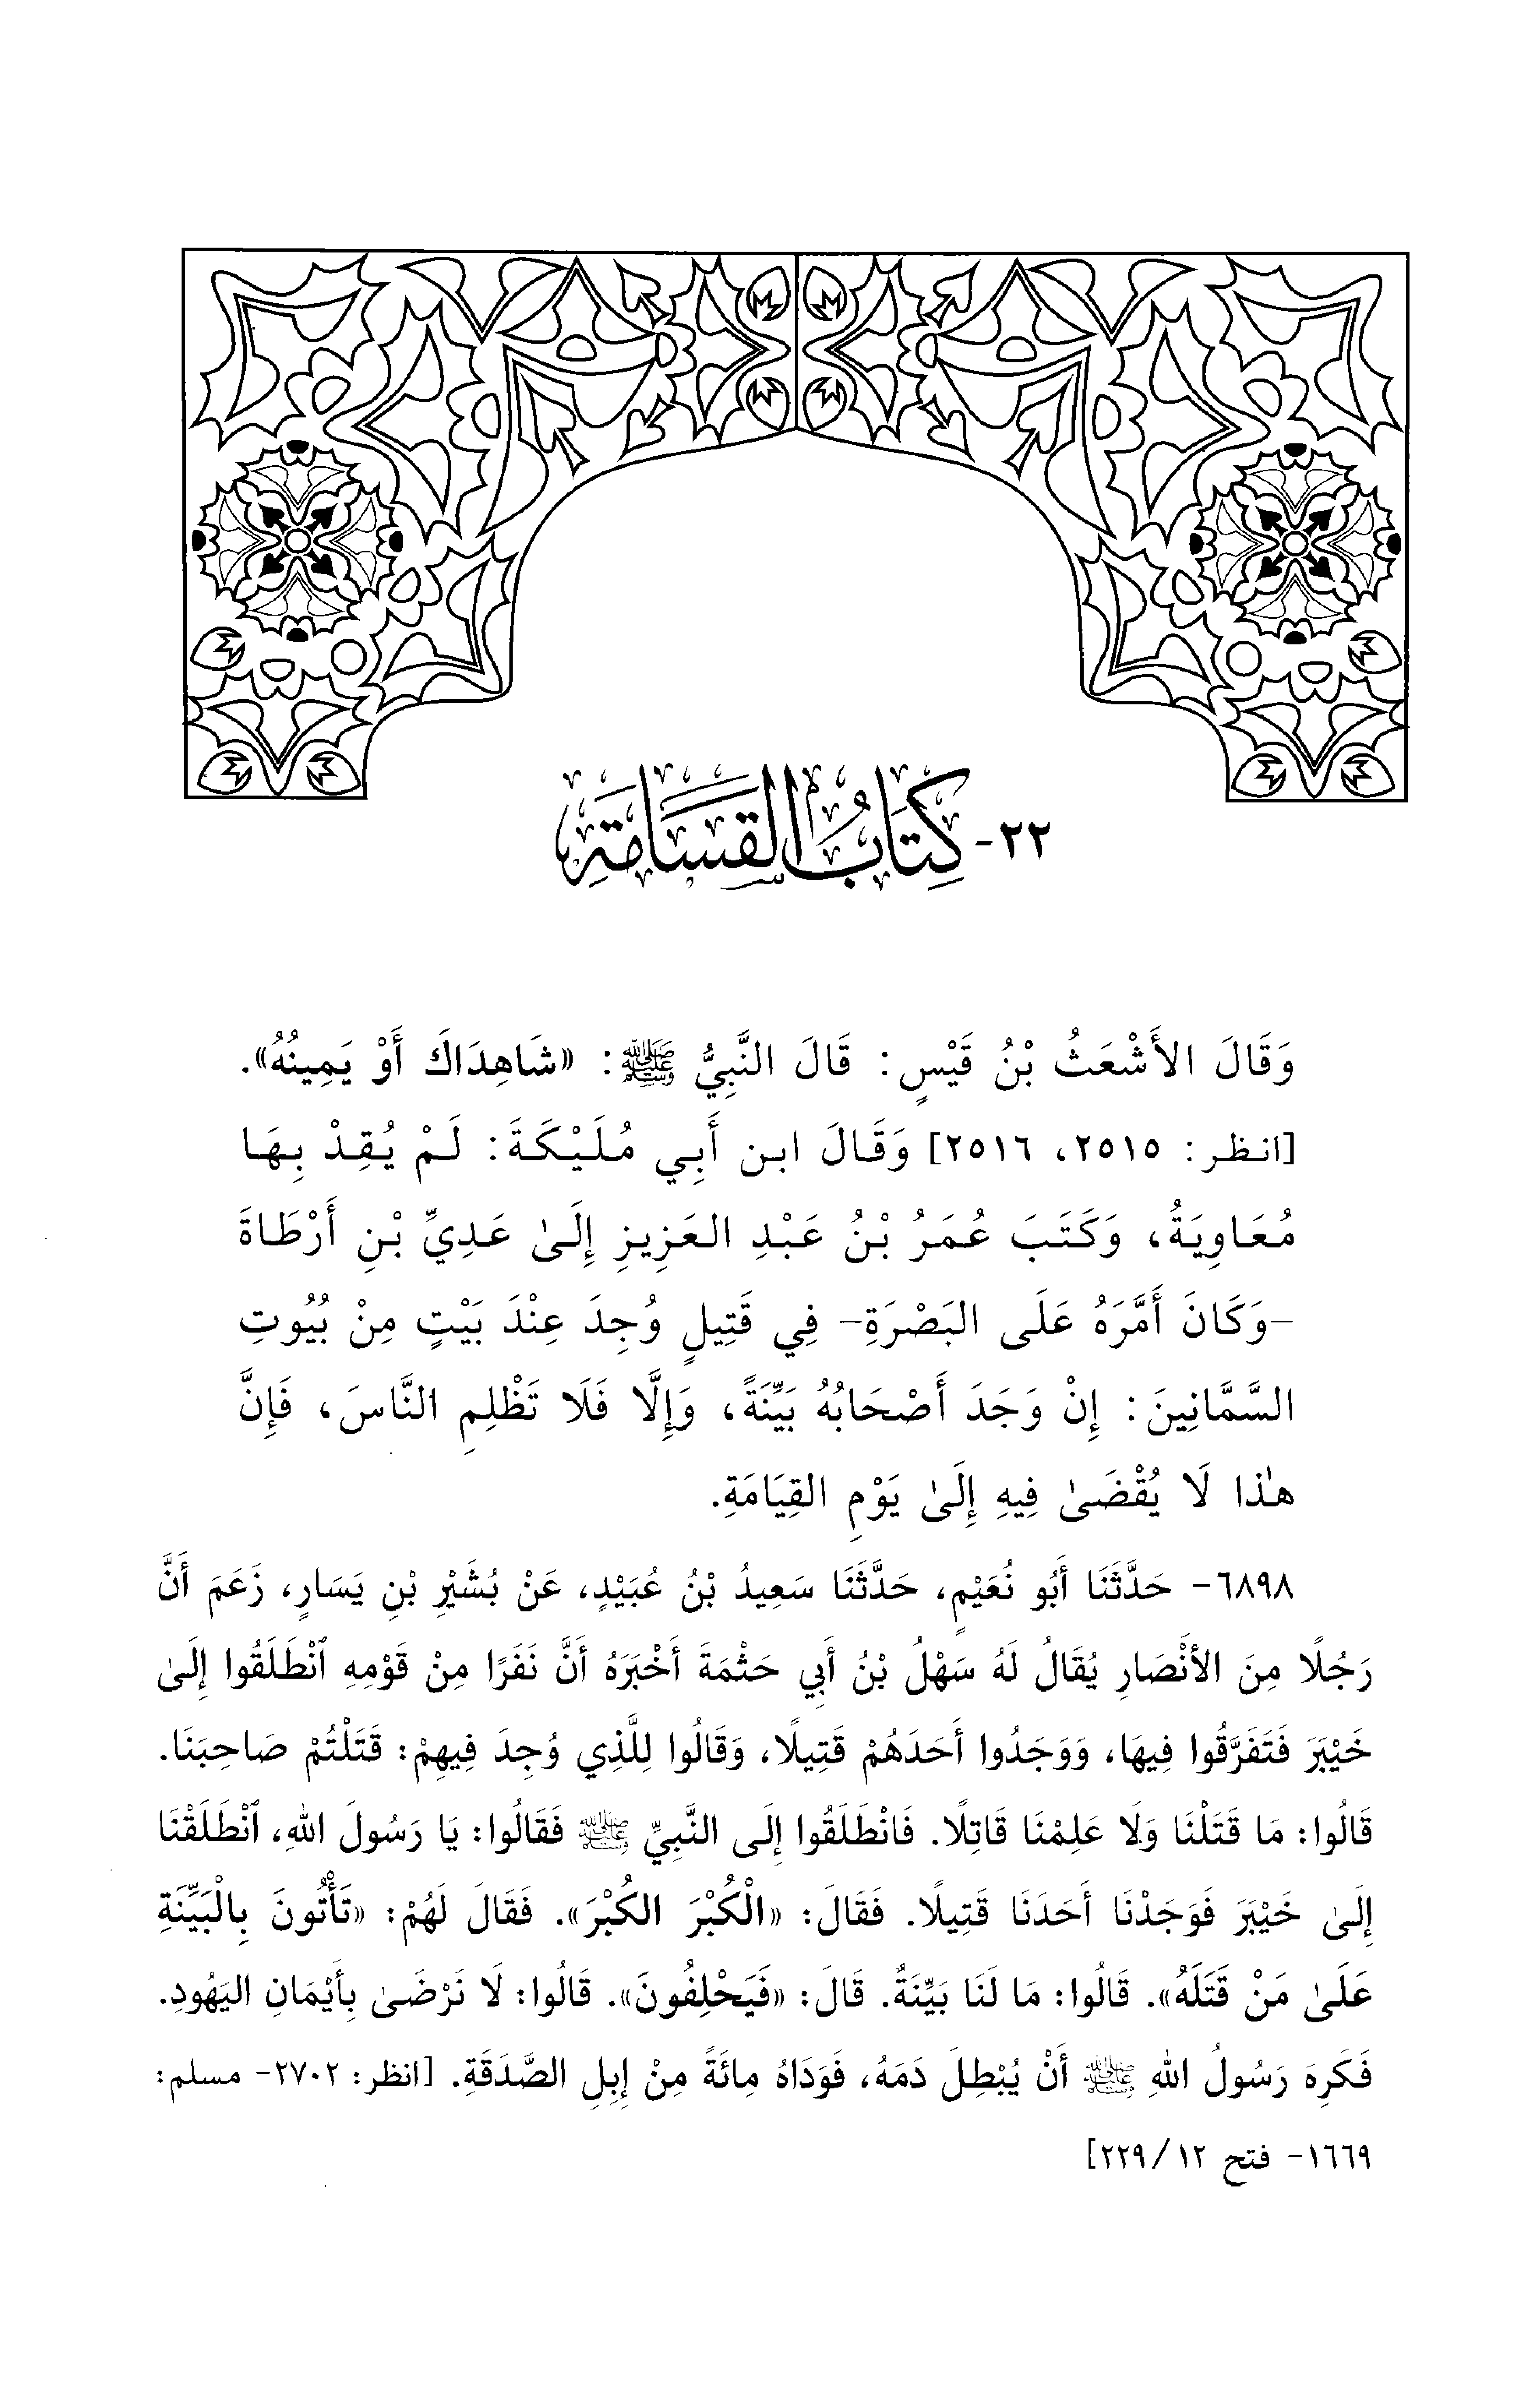 ٢٢- كِتَابُ القَسَامَةِ
وَقَالَ الأَشْعَثُ بْنُ قَيْسٍ: قَالَ النَّبِيُّ ﷺ: «شَاهِدَاكَ أَوْ يَمِينُهُ».
[انظر: ٢٥١٥، ٢٥١٦] وَقَالَ ابن أَبِي مُلَيْكَةَ: لَمْ يُقِدْ بِهَا
مُعَاوِيَةُ، وَكَتَبَ عُمَرُ بْنُ عَبْدِ العَزِيزِ إِلَىٰ عَدِيِّ بْنِ أَرْطَاةَ
-وَكَانَ أَمَّرَهُ عَلَى البَصْرَةِ- فِي قَتِيلٍ وُجِدَ عِنْدَ بَيْتٍ مِنْ بُيُوتِ
السَّمَّانِينَ: إِنْ وَجَدَ أَصْحَابُهُ بَيِّنَةً، وَإِلَّا فَلَا تَظْلِمِ النَّاسَ، فَإِنَّ
هذا لَا يُقْضَىٰ فِيهِ إِلَىٰ يَوْمِ القِيَامَةِ.
٦٨٩٨- حَدَّثَنَا أَبُو نُعَيْمٍ، حَدَّثَنَا سَعِيدُ بْنُ عُبَيْدٍ، عَنْ بُشَيْرِ بْنِ يَسَارٍ، زَعَمَ أَنَّ
رَجُلًا مِنَ الأَنْصَارِ يُقَالُ لَهُ سَهْلُ بْنُ أَبِي حَثْمَةَ أَخْبَرَهُ أَنَّ نَفَرًا مِنْ قَوْمِهِ ٱنْطَلَقُوا إِلَىٰ
خَيْبَرَ فَتَفَرَّقُوا فِيهَا، وَوَجَدُوا أَحَدَهُمْ قَتِيلًا، وَقَالُوا لِلَّذِي وُجِدَ فِيهِمْ: قَتَلْتُمْ صَاحِبَنَا.
قَالُوا: مَا قَتَلْنَا وَلَا عَلِمْنَا قَاتِلًا. فَانْطَلَقُوا إِلَى النَّبِيِّ ﷺ فَقَالُوا: يَا رَسُولَ اللهِ، ٱنْطَلَقْنَا
إِلَىٰ خَيْبَرَ فَوَجَدْنَا أَحَدَنَا قَتِيلًا. فَقَالَ: «الْكُبْرَ الكُبْرَ». فَقَالَ لَهُمْ: «تَأْتُونَ بِالْبَيِّنَةِ
عَلَىٰ مَنْ قَتَلَهُ». قَالُوا: مَا لَنَا بَيِّنَةٌ. قَالَ: «فَيَحْلِفُونَ». قَالُوا: لَا نَرْضَىٰ بِأَيْمَانِ اليَهُودِ.
فَكَرِهَ رَسُولُ اللهِ ﷺ أَنْ يُبْطِلَ دَمَهُ، فَوَدَاهُ مِائَةً مِنْ إِبِلِ الصَّدَقَةِ. [انظر: ٢٧٠٢- مسلم:
١٦٦٩- فتح ١٢/ ٢٢٩]